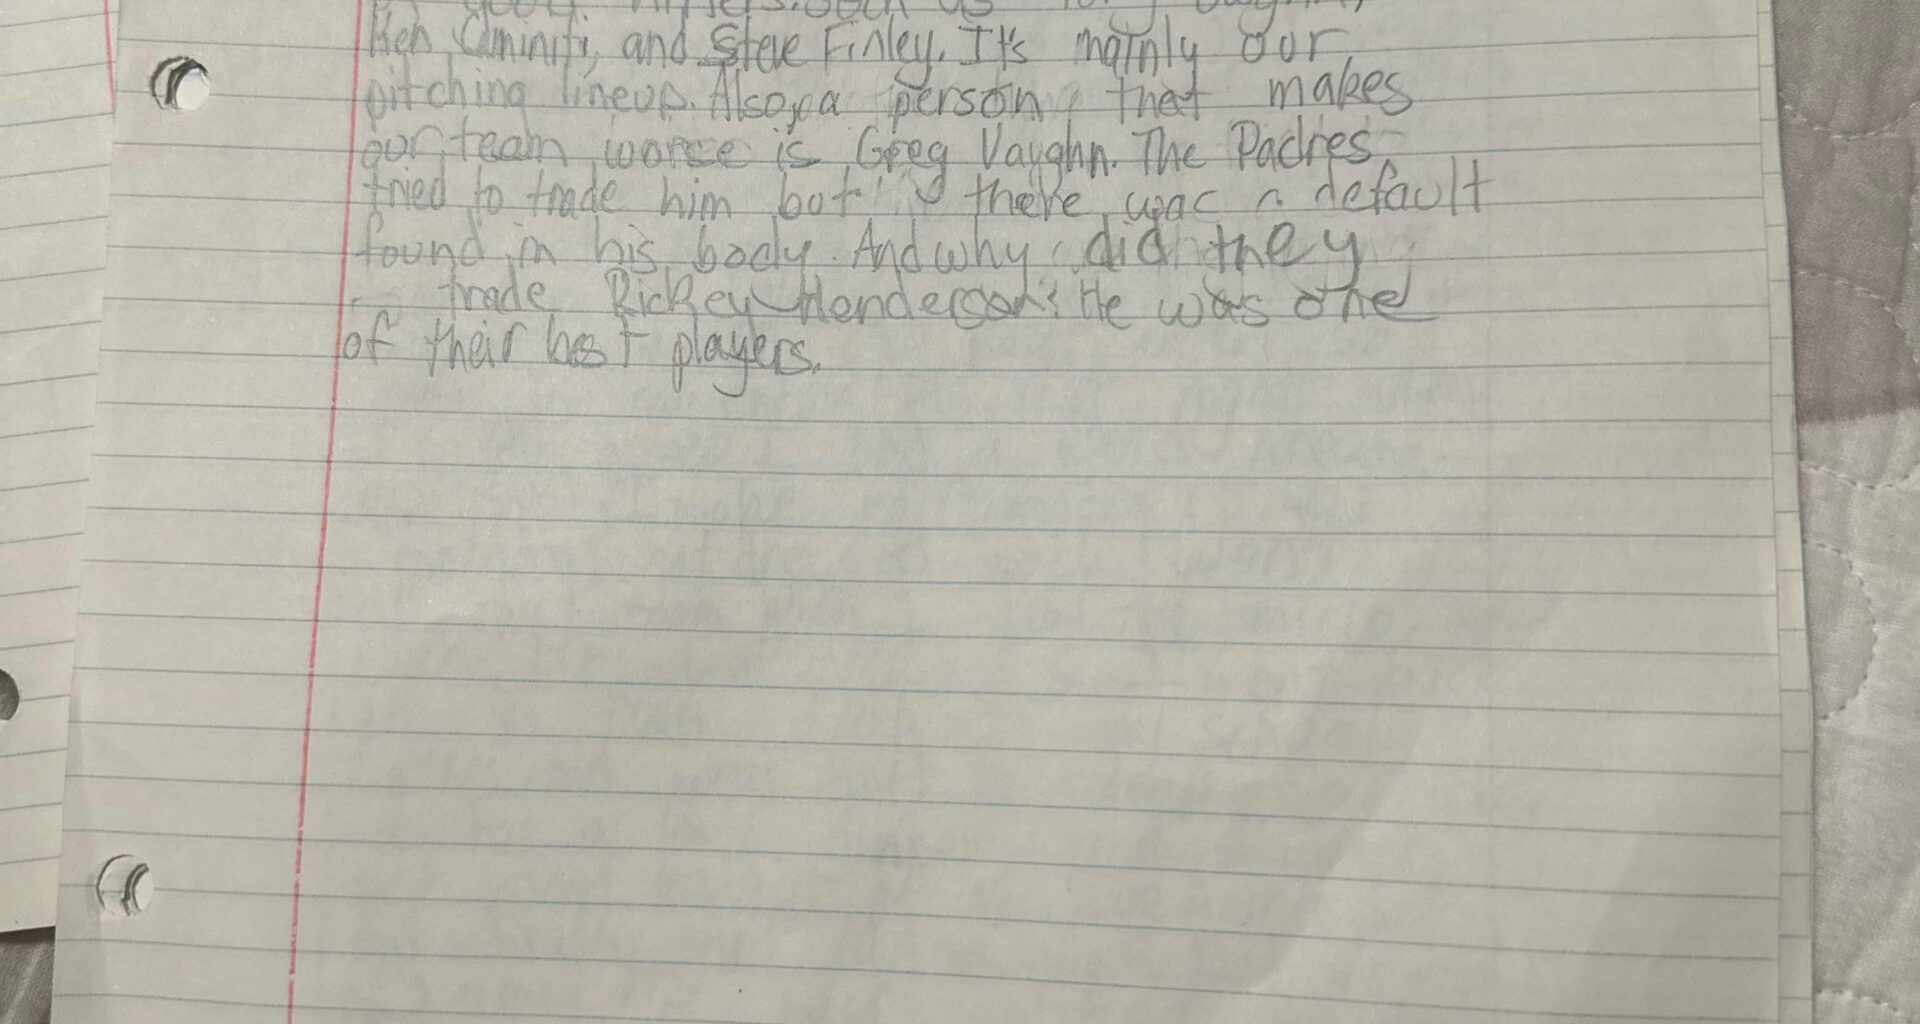 good hitters. Such as Tony Gwynn,
Ken Caminiti, and Steve Finley. It's mainly our
pitching lineup. Also, a person that makes
our team worse is Greg Vaughn. The Padres
tried to trade him but there was a default
found in his body. And why did they
trade Rickey Henderson? He was one
of their best players.